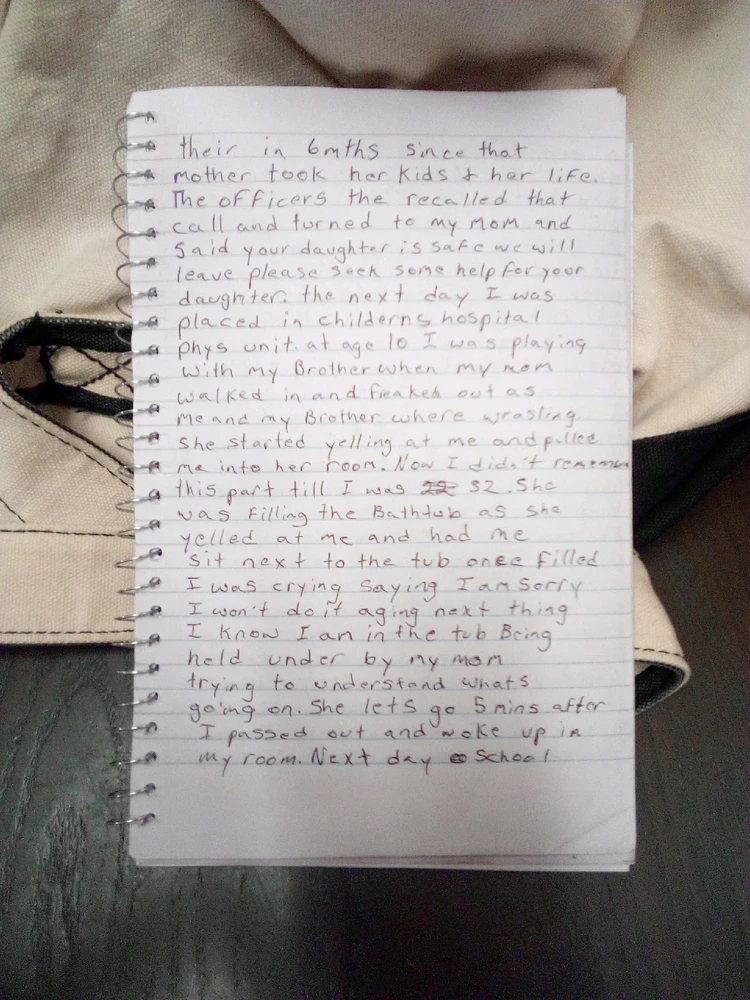 their in 6mths since that
mother took her kids & her life.
The officers the recalled that
call and turned to my mom and
said your daughter is safe we will
leave please seek some help for your
daughter. the next day I was
placed in childerns hospital
phys unit. at age 10 I was playing
with my Brother when my mom
walked in and freaked out as
me and my Brother where wrasling.
She started yelling at me and pulled
me into her room. Now I didn't remember
this part till I was 32. She
was filling the Bathtub as she
yelled at me and had me
sit next to the tub once filled
I was crying saying I am sorry
I won't do it aging next thing
I know I am in the tub Being
held under by my mom
trying to understand whats
going on. She lets go 5 mins after
I passed out and woke up in
my room. Next day School